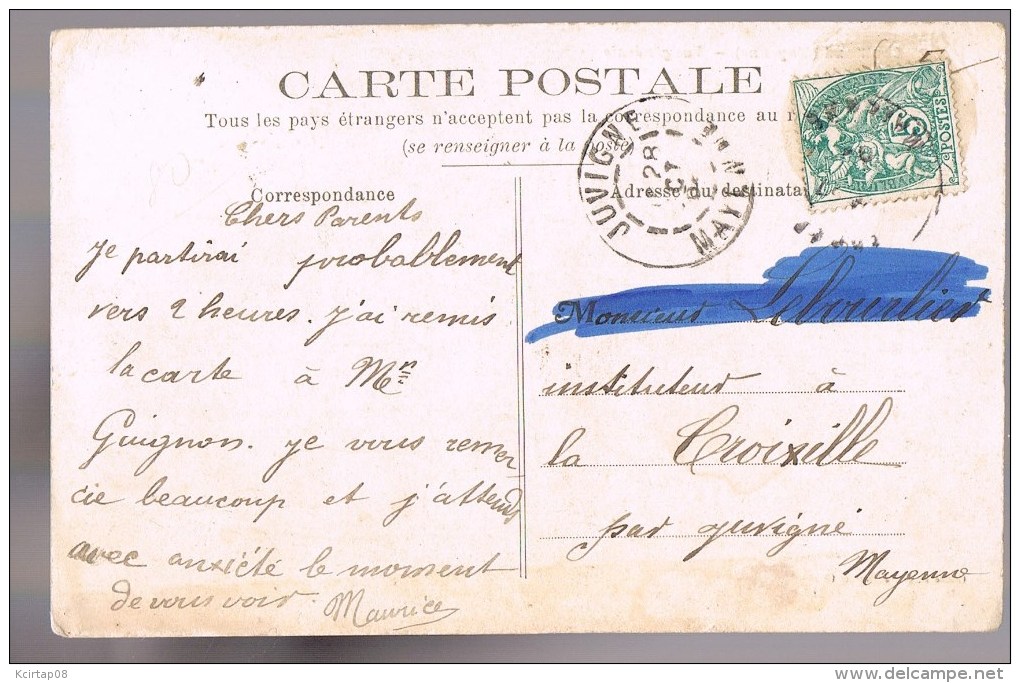 CARTE POSTALE
Tous les pays étrangers n'acceptent pas la correspondance au
(se renseigner à la poste)
Correspondance
Adresse du destinata
JUVIGNÉ
28
MAYENNE
POSTES
Chers Parents
Je partirai probablement
vers 2 heures. J'ai remis
la carte à Melle
Guignon. Je vous remer
cie beaucoup et j'attends
avec anxiété le moment
de vous voir. Maurice
Monsieur Lebourlier
instituteur à
la Croixille
par Juvigné
Mayenne
Kcirtap08
delcampe.net